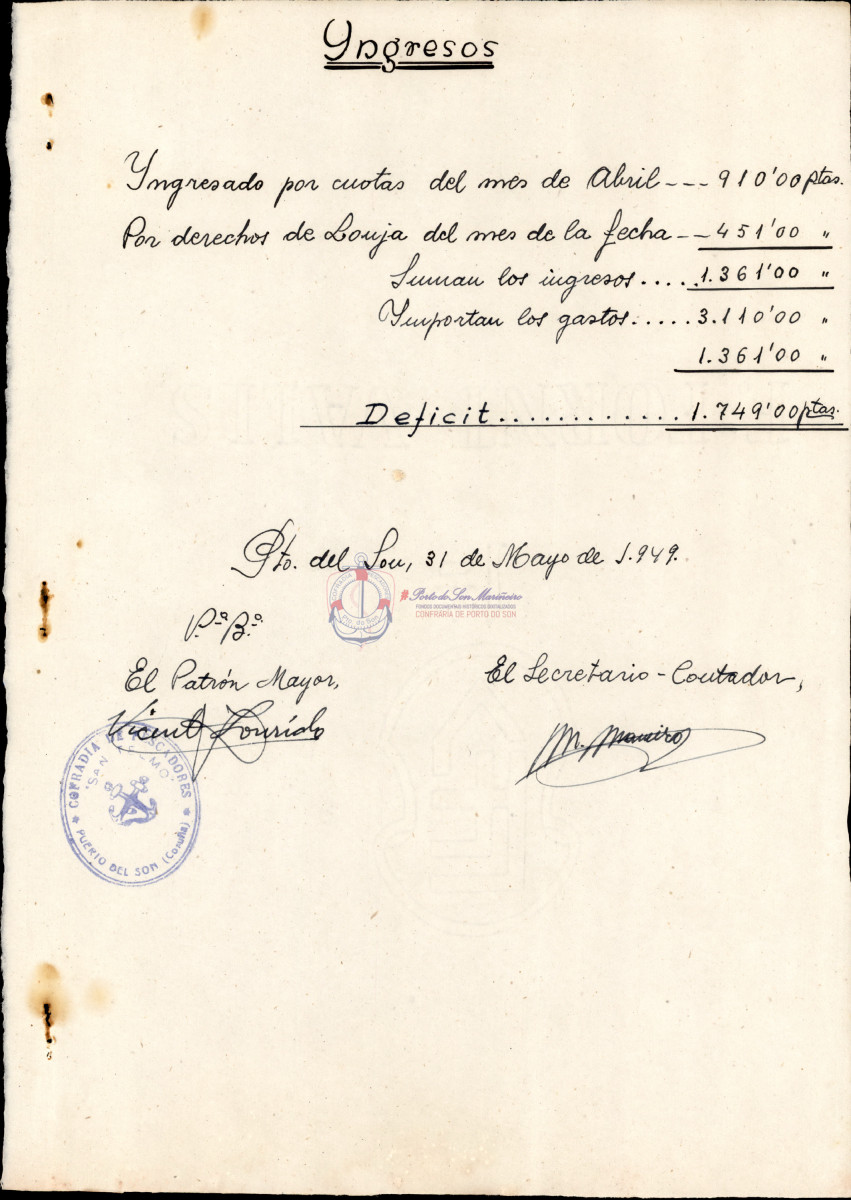 Yngresos
Yngresado por cuotas del mes de Abril --- 910'00 ptas.
Por derechos de Lonja del mes de la fecha -- 451'00 "
Suman los ingresos..... 1.361'00 "
Ymportan los gastos..... 3.110'00 "
1.361'00 "
Deficit............ 1.749'00 ptas.
Pto. del Son, 31 de Mayo de 1.949.
COFRADIA PESCADORES
Pto. do Son
# Porto do Son Mariñeiro
FONDOS DOCUMENTAIS HISTÓRICOS DIXITALIZADOS
CONFRARÍA DE PORTO DO SON
V.º B.º
El Patrón Mayor,
El Secretario-Contador,
Vicente Lourido
M. Maneiro
COFRADIA DE PESCADORES
"SAN TELMO"
PUERTO DEL SON (Coruña)